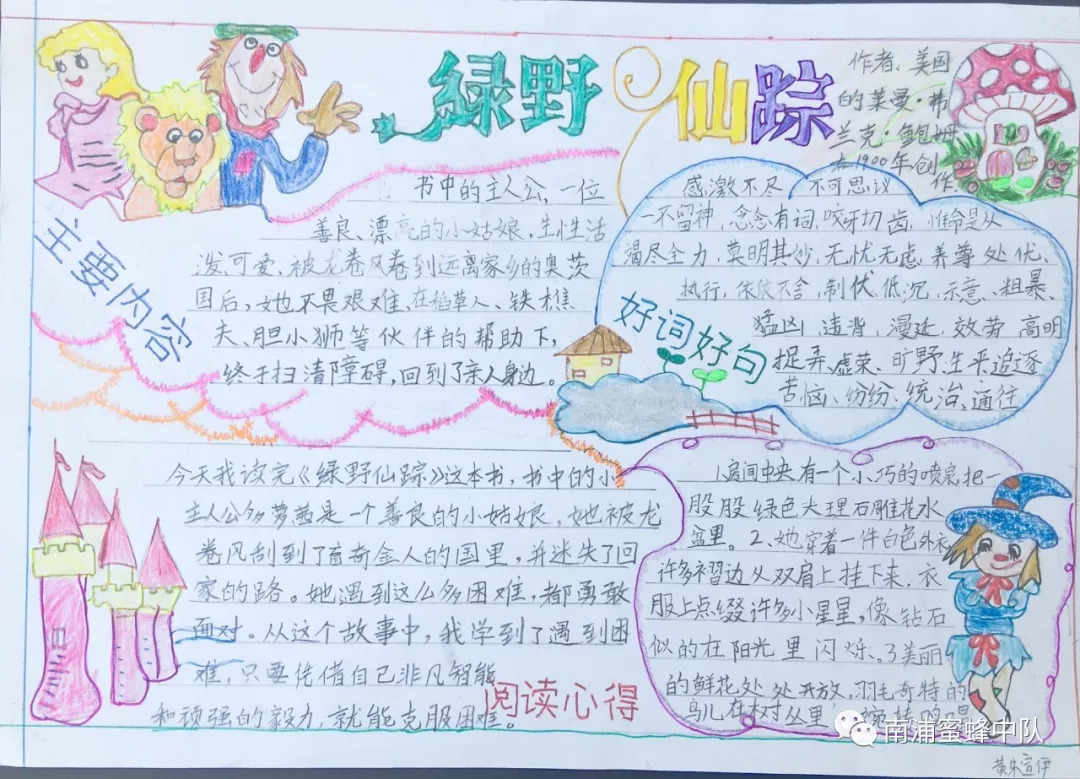 绿野仙踪
作者:美国
的莱曼·弗
兰克·鲍姆
在1900年创
作
主要内容
书中的主人公,一位
善良、漂亮的小姑娘,生性活
泼、可爱,被龙卷风卷到远离家乡的奥茨
国后,她不畏艰难,在稻草人、铁樵
夫、胆小狮等伙伴的帮助下,
终于扫清障碍,回到了亲人身边。
感激不尽 不可思议
一不留神,念念有词,咬牙切齿,惟命是从
竭尽全力,莫明其妙,无忧无虑,养尊处优、
执行,依依不舍,制伏,低沉,示意、粗暴、
猛凶,违背,漫延,效劳 高明
捉弄、虚荣、旷野、生平、追逐
苦恼、纷纷、统治、通往
好词好句
今天我读完《绿野仙踪》这本书,书中的小
主人公多萝茜是一个善良的小姑娘,她被龙
卷风刮到了奇金人的国里,并迷失了回
家的路。她遇到这么多困难,都勇敢
面对。从这个故事中,我学到了遇到困
难,只要凭借自己非凡智能
和顽强的毅力,就能克服困难。
阅读心得
1房间中央有一个小巧的喷泉,把一
股股绿色大理石雕花水
盆里。2、她穿着一件白色外衣
许多褶边从双肩上挂下来,衣
服上点缀许多小星星,像钻石
似的在阳光里闪烁。3美丽
的鲜花处处开放,羽毛奇特的
鸟儿在树丛里
南浦蜜蜂中队